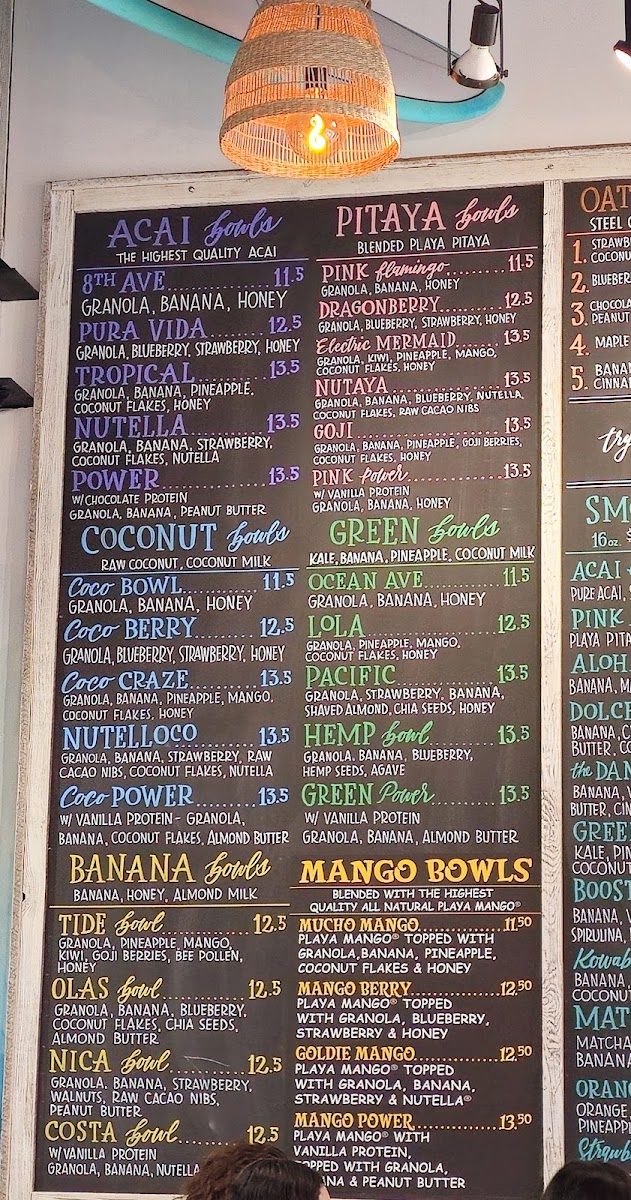 ACAI bowls
THE HIGHEST QUALITY ACAI
8TH AVE.......................11.5
GRANOLA, BANANA, HONEY
PURA VIDA..............12.5
GRANOLA, BLUEBERRY, STRAWBERRY, HONEY
TROPICAL..............13.5
GRANOLA, BANANA, PINEAPPLE,
COCONUT FLAKES, HONEY
NUTELLA................13.5
GRANOLA, BANANA, STRAWBERRY,
COCONUT FLAKES, NUTELLA
POWER..................13.5
W/CHOCOLATE PROTEIN
GRANOLA, BANANA, PEANUT BUTTER
COCONUT bowls
RAW COCONUT, COCONUT MILK
Coco BOWL..............11.5
GRANOLA, BANANA, HONEY
Coco BERRY..............12.5
GRANOLA, BLUEBERRY, STRAWBERRY, HONEY
Coco CRAZE..............13.5
GRANOLA, BANANA, PINEAPPLE, MANGO,
COCONUT FLAKES, HONEY
NUTELLOCO..............13.5
GRANOLA, BANANA, STRAWBERRY, RAW
CACAO NIBS, COCONUT FLAKES, NUTELLA
Coco POWER..............13.5
W/ VANILLA PROTEIN - GRANOLA,
BANANA, COCONUT FLAKES, ALMOND BUTTER
BANANA bowls
BANANA, HONEY, ALMOND MILK
TIDE bowl..............12.5
GRANOLA, PINEAPPLE, MANGO,
KIWI, GOJI BERRIES, BEE POLLEN,
HONEY
OLAS bowl..............12.5
GRANOLA, BANANA, BLUEBERRY,
COCONUT FLAKES, CHIA SEEDS,
ALMOND BUTTER
NICA bowl..............12.5
GRANOLA, BANANA, STRAWBERRY,
WALNUTS, RAW CACAO NIBS,
PEANUT BUTTER
COSTA bowl..............12.5
W/VANILLA PROTEIN
GRANOLA, BANANA, NUTELLA
PITAYA bowls
BLENDED PLAYA PITAYA
PINK flamingo..........11.5
GRANOLA, BANANA, HONEY
DRAGONBERRY..............12.5
GRANOLA, BLUEBERRY, STRAWBERRY, HONEY
Electric MERMAID..........13.5
GRANOLA, KIWI, PINEAPPLE, MANGO,
COCONUT FLAKES, HONEY
NUTAYA..................13.5
GRANOLA, BANANA, BLUEBERRY, NUTELLA,
COCONUT FLAKES, RAW CACAO NIBS
GOJI..................13.5
GRANOLA, BANANA, PINEAPPLE, GOJI BERRIES,
COCONUT FLAKES, HONEY
PINK Power..............13.5
W/ VANILLA PROTEIN
GRANOLA, BANANA, HONEY
GREEN bowls
KALE, BANANA, PINEAPPLE, COCONUT MILK
OCEAN AVE..............11.5
GRANOLA, BANANA, HONEY
LOLA..................12.5
GRANOLA, PINEAPPLE, MANGO,
COCONUT FLAKES, HONEY
PACIFIC..................13.5
GRANOLA, STRAWBERRY, BANANA,
SHAVED ALMOND, CHIA SEEDS, HONEY
HEMP bowl..............13.5
GRANOLA, BANANA, BLUEBERRY,
HEMP SEEDS, AGAVE
GREEN Power..............13.5
W/ VANILLA PROTEIN
GRANOLA, BANANA, ALMOND BUTTER
MANGO BOWLS
BLENDED WITH THE HIGHEST
QUALITY ALL NATURAL PLAYA MANGO®
MUCHO MANGO..............11.50
PLAYA MANGO® TOPPED WITH
GRANOLA, BANANA, PINEAPPLE,
COCONUT FLAKES & HONEY
MANGO BERRY..............12.50
PLAYA MANGO® TOPPED
WITH GRANOLA, BLUEBERRY,
STRAWBERRY & HONEY
GOLDIE MANGO..............12.50
PLAYA MANGO® TOPPED
WITH GRANOLA, BANANA,
STRAWBERRY & NUTELLA®
MANGO POWER..............13.50
PLAYA MANGO® WITH
VANILLA PROTEIN,
TOPPED WITH GRANOLA,
& PEANUT BUTTER
OAT
STEEL
1. STRAWB
COCONU
2. BLUEBER
3. CHOCOLA
PEANUT
4. MAPLE
5. BANAN
CINNA
try
SM
16oz.
ACAI
PURE ACAI,
PINK
PLAYA PITA
ALOH
BANANA, M
DOLCE
BANANA, C
BUTTER, CO
the DAN
BANANA, V
BUTTER, CIN
GREE
KALE, PIN
COCONUT
BOOST
BANANA,
SPIRULINA,
Kowab
BANANA,
COCONUT
MAT
MATCHA
BANANA
ORAN
ORANGE
PINEAPP
Strawb